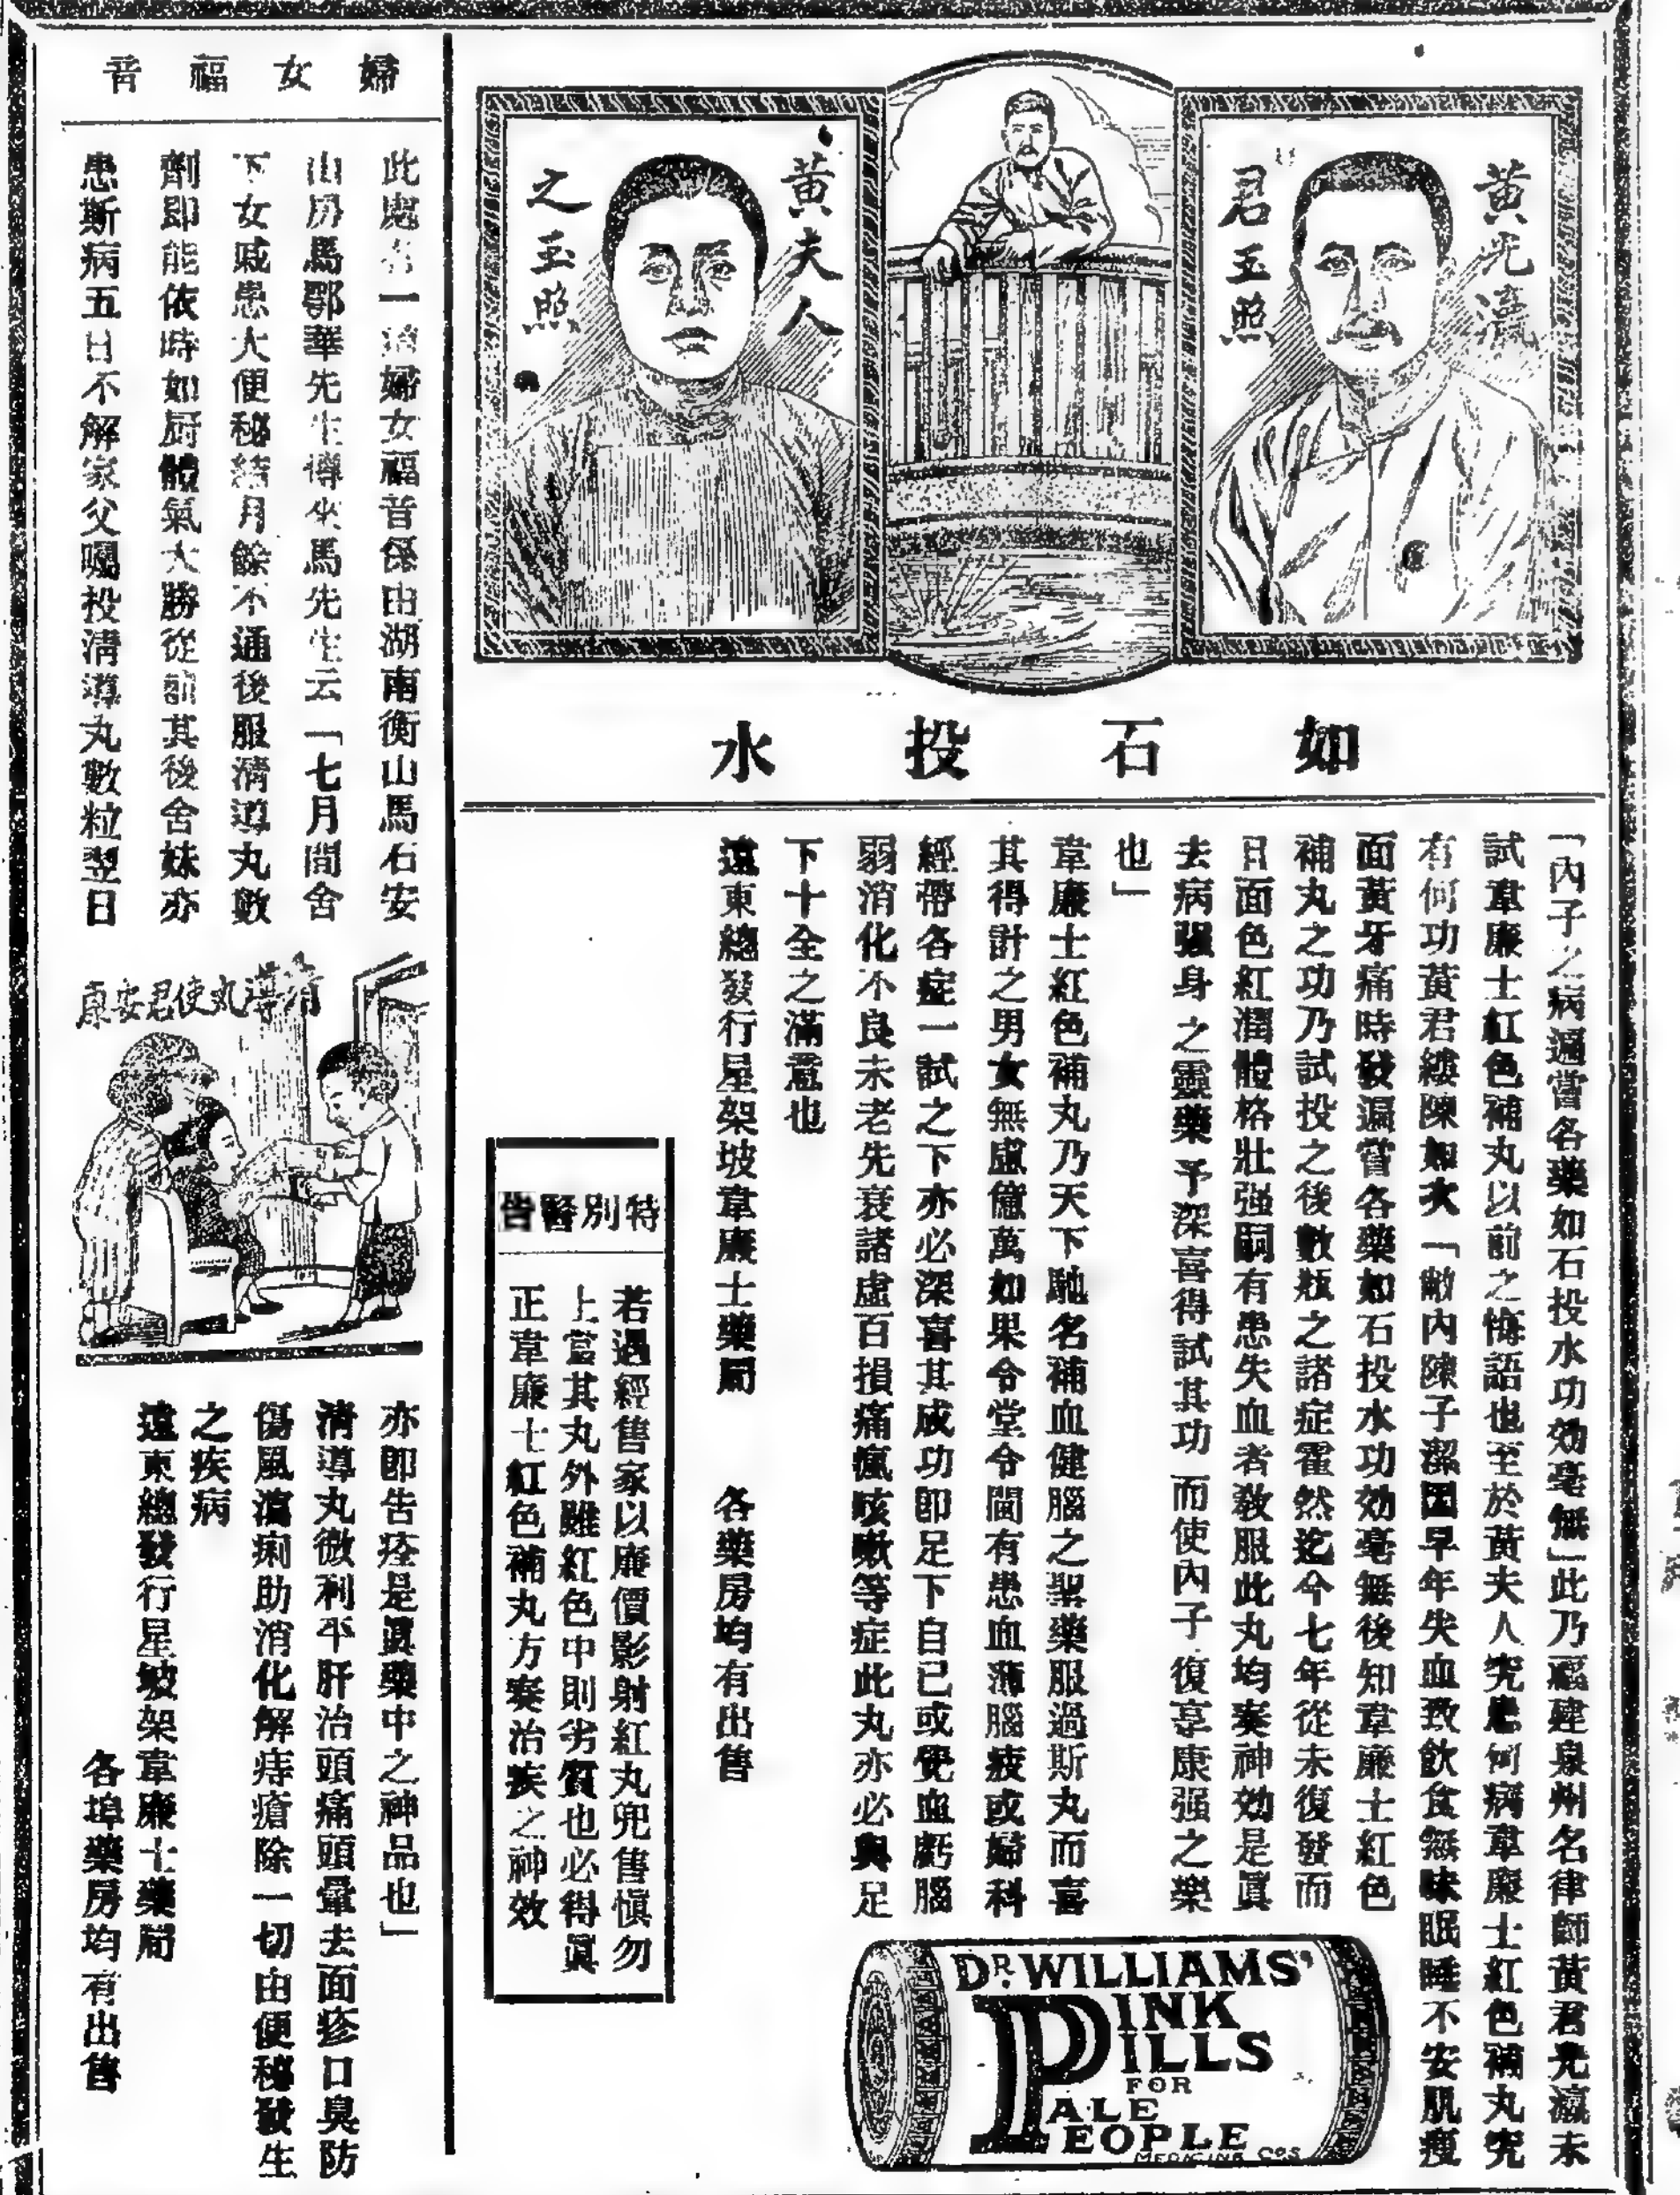 黃光瀛
君玉照
黃夫人
之玉照
如石投水
「內子之病遍嘗各藥如石投水功効毫無」此乃福建泉州名律師黃君光瀛未
試韋廉士紅色補丸以前之悔語也至於黃夫人究患何病韋廉士紅色補丸究
有何功黃君縷陳如次「敝內陳子潔因早年失血致飲食無味眠睡不安肌瘦
面黃牙痛時發遍嘗各藥如石投水功効毫無後知韋廉士紅色
補丸之功乃試投之後數瓶之諸症霍然迄今七年從未復發而
日面色紅潤體格壯强嗣有患失血者敎服此丸均奏神効是眞
去病强身之靈藥予深喜得試其功而使內子復享康强之樂
也」
韋廉士紅色補丸乃天下馳名補血健腦之聖藥服過斯丸而喜
其得計之男女無慮億萬如果令堂令閫有患血薄腦疲或婦科
經帶各症一試之下亦必深喜其成功卽足下自己或覺血虧腦
弱消化不良未老先衰諸虛百損痛瘋咳嗽等症此丸亦必與足
下十全之滿意也
遠東總發行星架坡韋廉士藥局　各藥房均有出售
特別警告
若遇經售家以廉價影射紅丸兜售愼勿
上當其丸外雖紅色中則劣質也必得眞
正韋廉士紅色補丸方奏治疾之神效
DR. WILLIAMS'
PINK
PILLS
FOR
PALE
PEOPLE
MEDICINE COS
婦女福音
此處有一婦女福音係由湖南衡山馬石安
山房馬鄂華先生傳來馬先生云「七月間舍
下女戚患大便秘結月餘不通後服清導丸數
劑即能依時如厨體氣大勝從前其後舍妹亦
患斯病五日不解家父囑投清導丸數粒翌日
清導丸使君安康
亦卽告痊是眞藥中之神品也」
清導丸微利平肝治頭痛頭暈去面疹口臭防
傷風瀉痢助消化解痔瘡除一切由便秘發生
之疾病
遠東總發行星坡架韋廉士藥局
各埠藥房均有出售